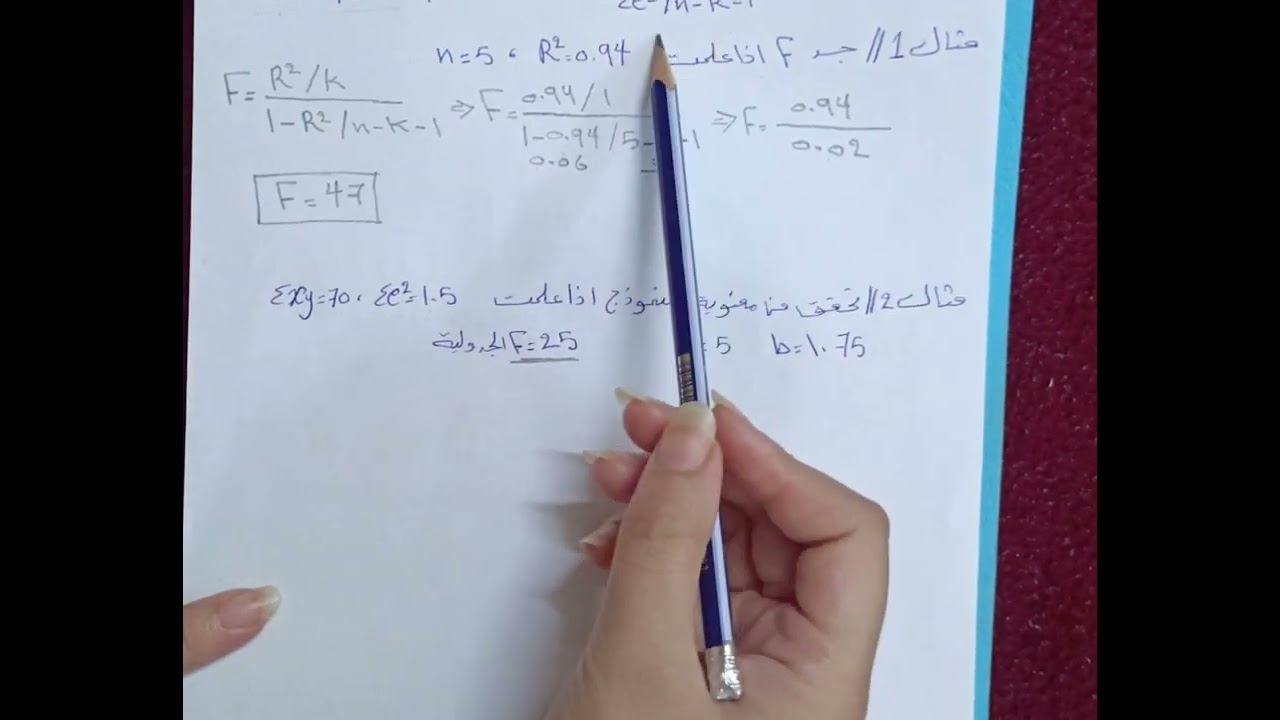 Σe²/n-k-1
مثال 1// جد F اذا علمت R²=0.94 ، n=5
F= R²/k / 1-R²/n-k-1 ⇒ F= 0.94/1 / 1-0.94/5- -1 ⇒ F= 0.94 / 0.02
0.06
F=47
مثال 2// تحقق من معنوية النموذج اذا علمت Σe²=1.5 ، Σxy=70
b=1.75 =5 F=25 الجدولية